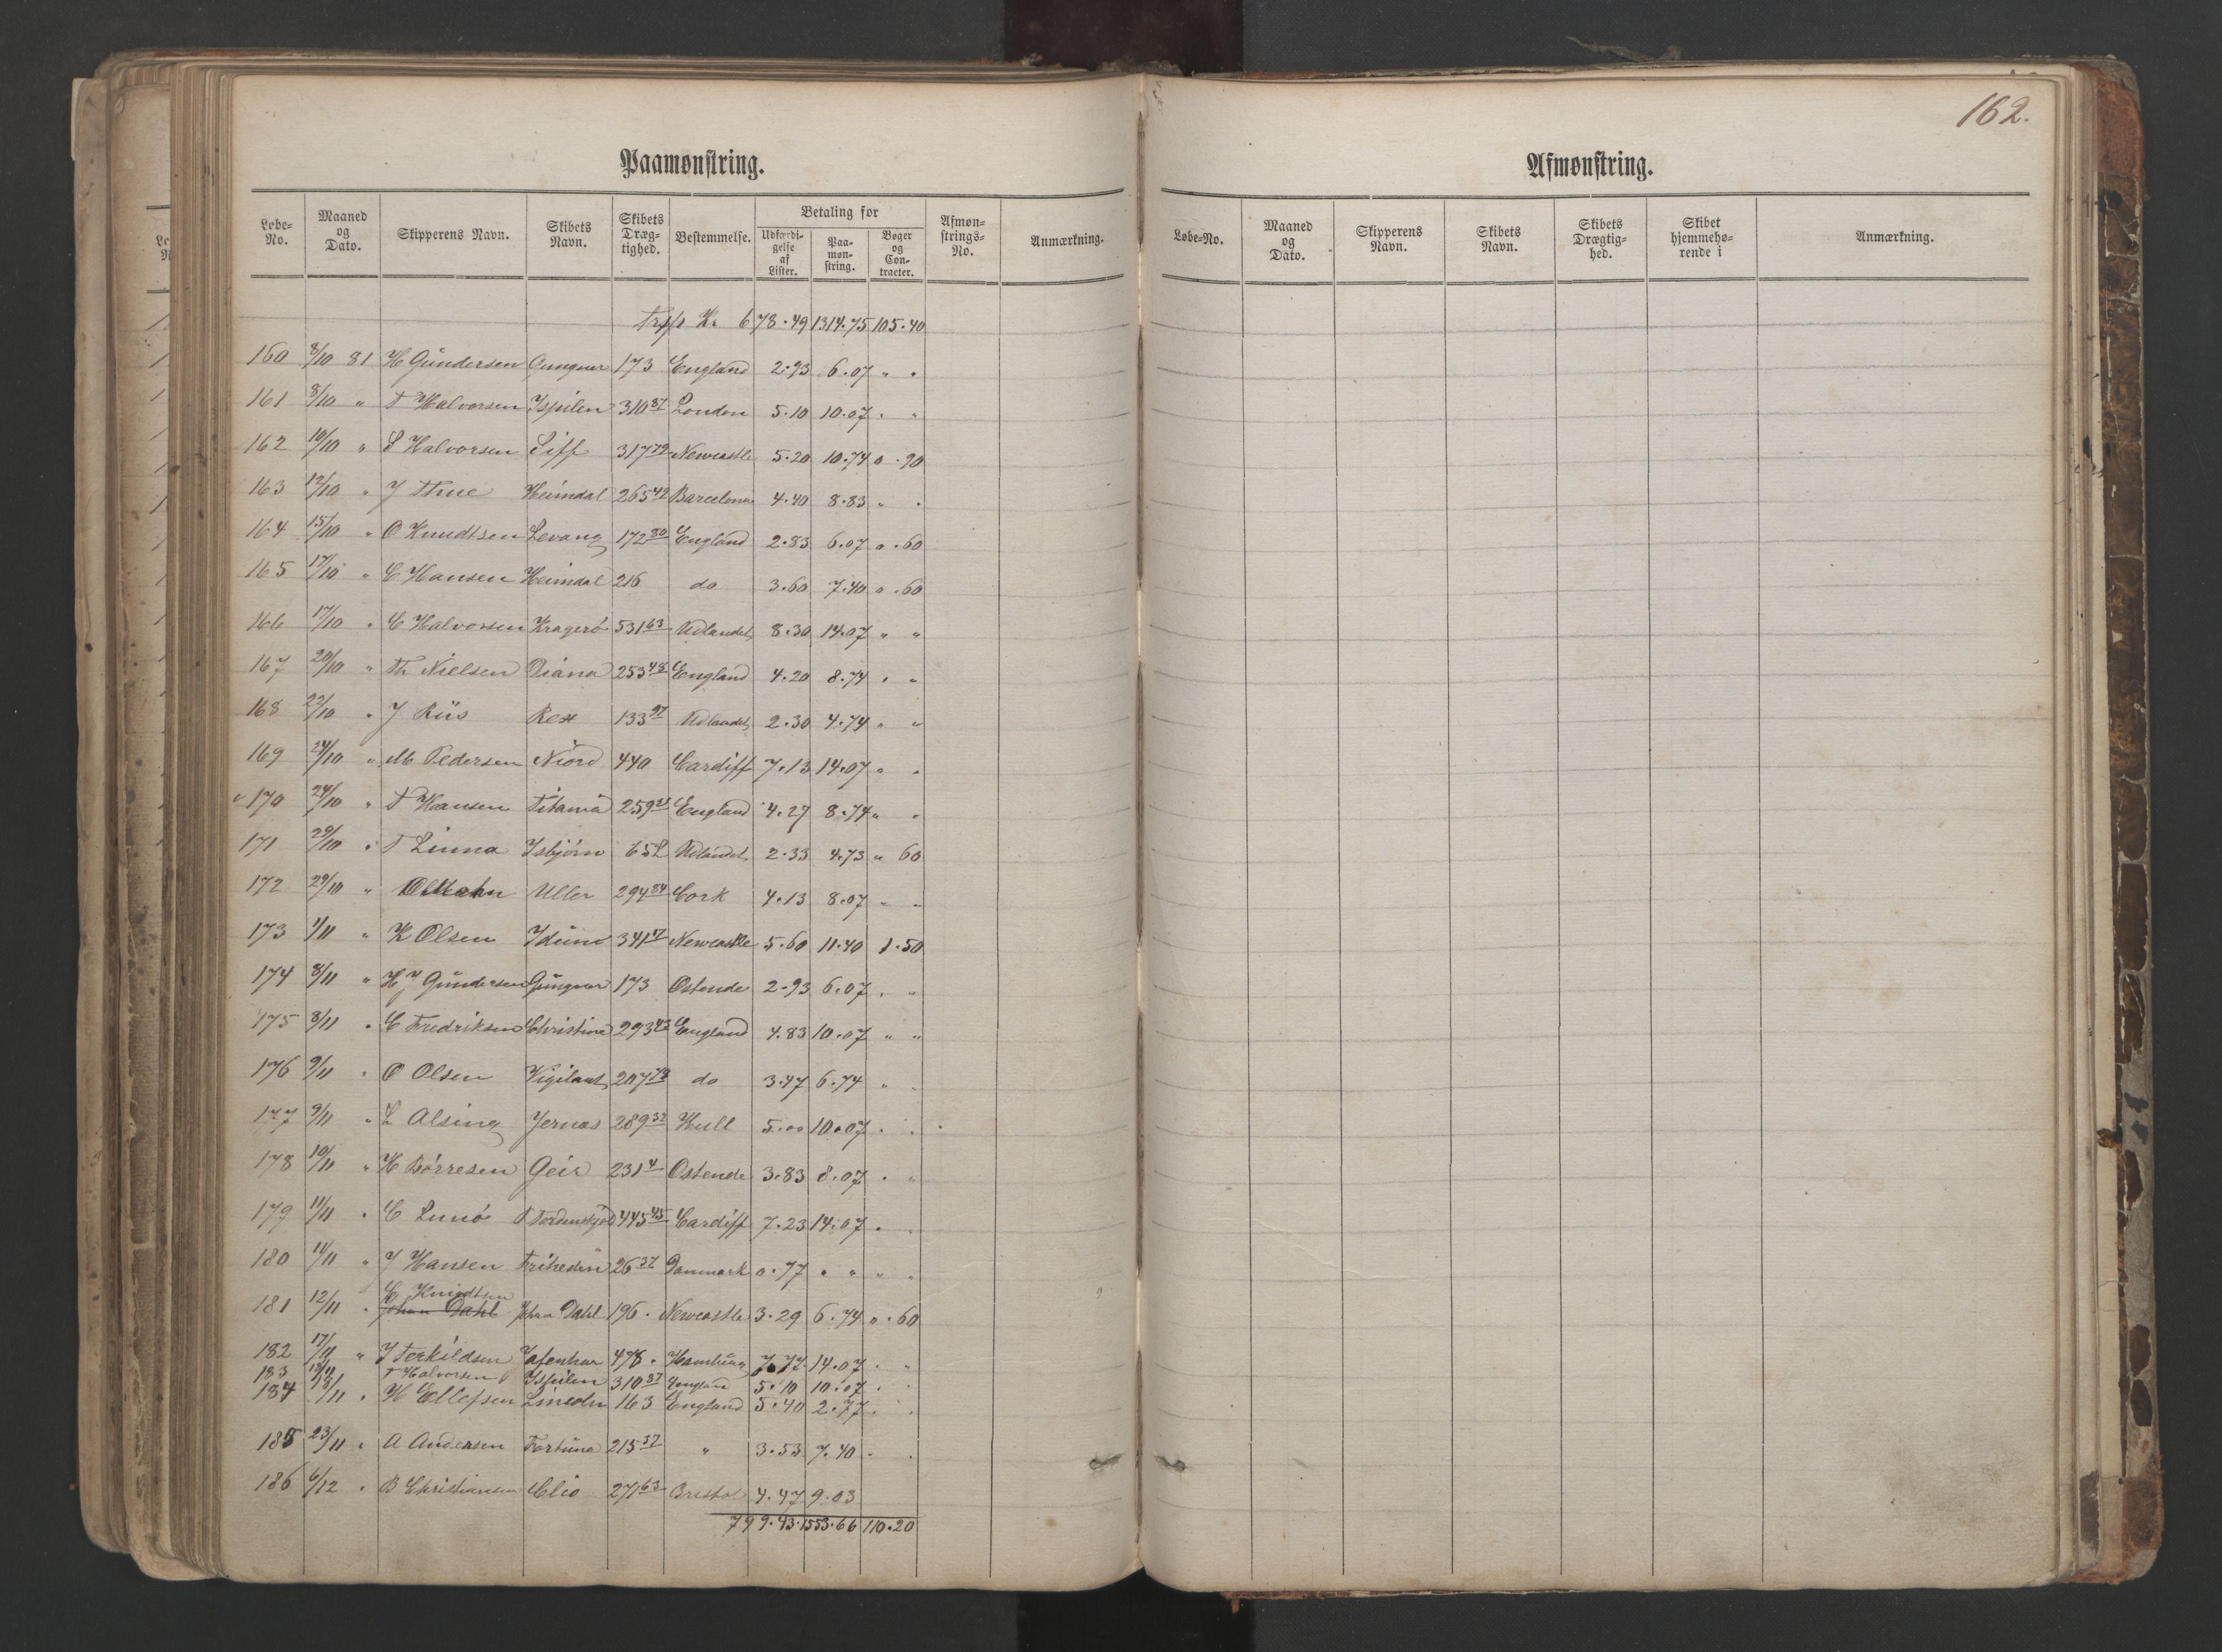 162.
Paamønstring.
Løbe-No. Maaned og Dato. Skipperens Navn. Skibets Navn. Skibets Dræg-tighed. Bestemmelse. Betaling for Udfærdi-gelse af Lister. Paa-møn-string. Bøger og Con-tracter. Afmøn-strings-No. Anmærkning.
Kr. 678.49 1314.75 105.40
160 8/10 81 H Gundersen Gungner 173 England 2.93 6.07 " "
161 8/10 " T Halvorsen Ispilen 310 87 London 5.10 10.07 " "
162 10/10 " S Halvorsen Siff 317 79 Newcastle 5.20 10.74 0.90
163 12/10 " J Thue Heimdal 265 42 Barcelona 4.40 8.83 " "
164 15/10 " O Knudtsen Levang 172 80 England 2.83 6.07 0.60
165 17/10 " C Hansen Heimdal 216 do 3.60 7.40 0.60
166 17/10 " C Halvorsen Kragerö 531 63 Udlandet 8.30 14.07 " "
167 20/10 " Th Nielsen Diana 253 48 England 4.20 8.74 " "
168 22/10 " J Riis Rex 133 97 Udlandet 2.30 4.74 " "
169 24/10 " M Pedersen Niord 440 Cardiff 7.13 14.07 " "
170 24/10 " T Hansen Titania 259 England 4.27 8.74 " "
171 29/10 " T Linna Isbjörn 65 L Udlandet 2.33 4.73 " 60
172 29/10 " Uller 294 84 Cork 4.13 8.07 " "
173 1/11 " K Olsen Idun 341 47 Newcastle 5.60 11.40 1.50
174 8/11 " H J Gundersen Gungner 173 Ostende 2.93 6.07 " "
175 8/11 " C Fredriksen Christine 293 43 England 4.83 10.07 " "
176 9/11 " O Olsen Vigilant 207 78 do 3.47 6.74 " "
177 9/11 " L Alsing Jernæs 289 32 Hull 5.00 10.07 " "
178 10/11 " H Börresen Geir 231 4 Ostende 3.83 8.07 " "
179 11/11 " C Lunö T Tordenskjold 445 45 Cardiff 7.23 14.07 "
180 11/11 " J Hansen Friheden 26 37 Danmark 0.77 " " " "
C Knudtsen
181 12/11 " Johan Dahl John Dahl 196 . Newcastle 3.29 6.74 0.60
182 17/11 " J Terkildsen Jafenhar 478 . Hamburg 7.77 14.07 " "
183 18/11 T Halvorsen Ispilen 310 87 England 5.10 10.07 "
184 18/11 " H Ellefsen Lincoln 163 England 5.40 2.77 "
185 23/11 " A Andersen Fortuna 215 37 " 3.53 7.40 "
186 6/12 " B Christiansen Clio 271 63 Bristol 4.47 9.03
799.43 1553.66 110.20
Afmønstring.
Løbe-No. Maaned og Dato. Skipperens Navn. Skibets Navn. Skibets Drægtig-hed. Skibet hjemmehø-rende i Anmærkning.